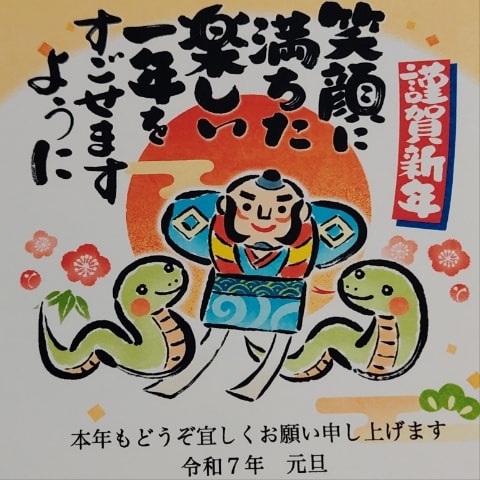 謹賀新年
笑顔に
満ちた
楽しい
一年を
すごせます
ように
本年もどうぞ宜しくお願い申し上げます
令和7年 元旦